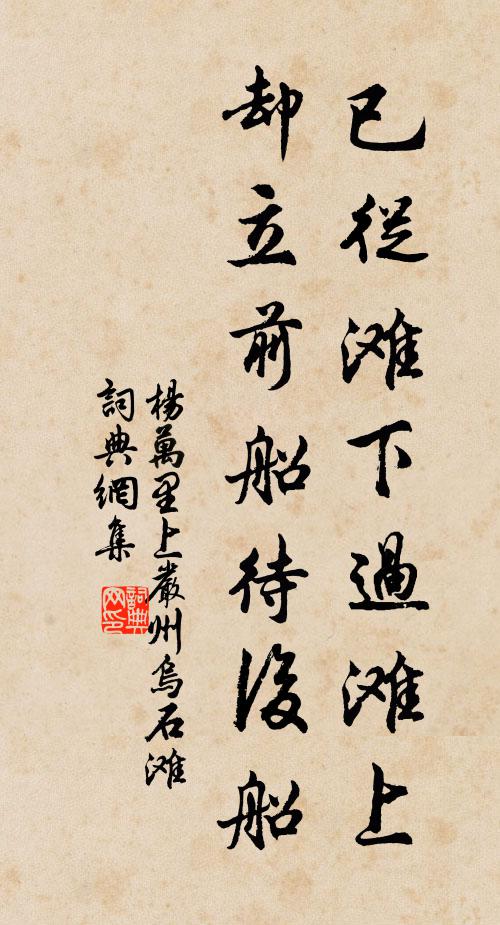 已從滩下過滩上
却立前船待後船
楊萬里上嚴州烏石滩
詞典網集
詞典网印